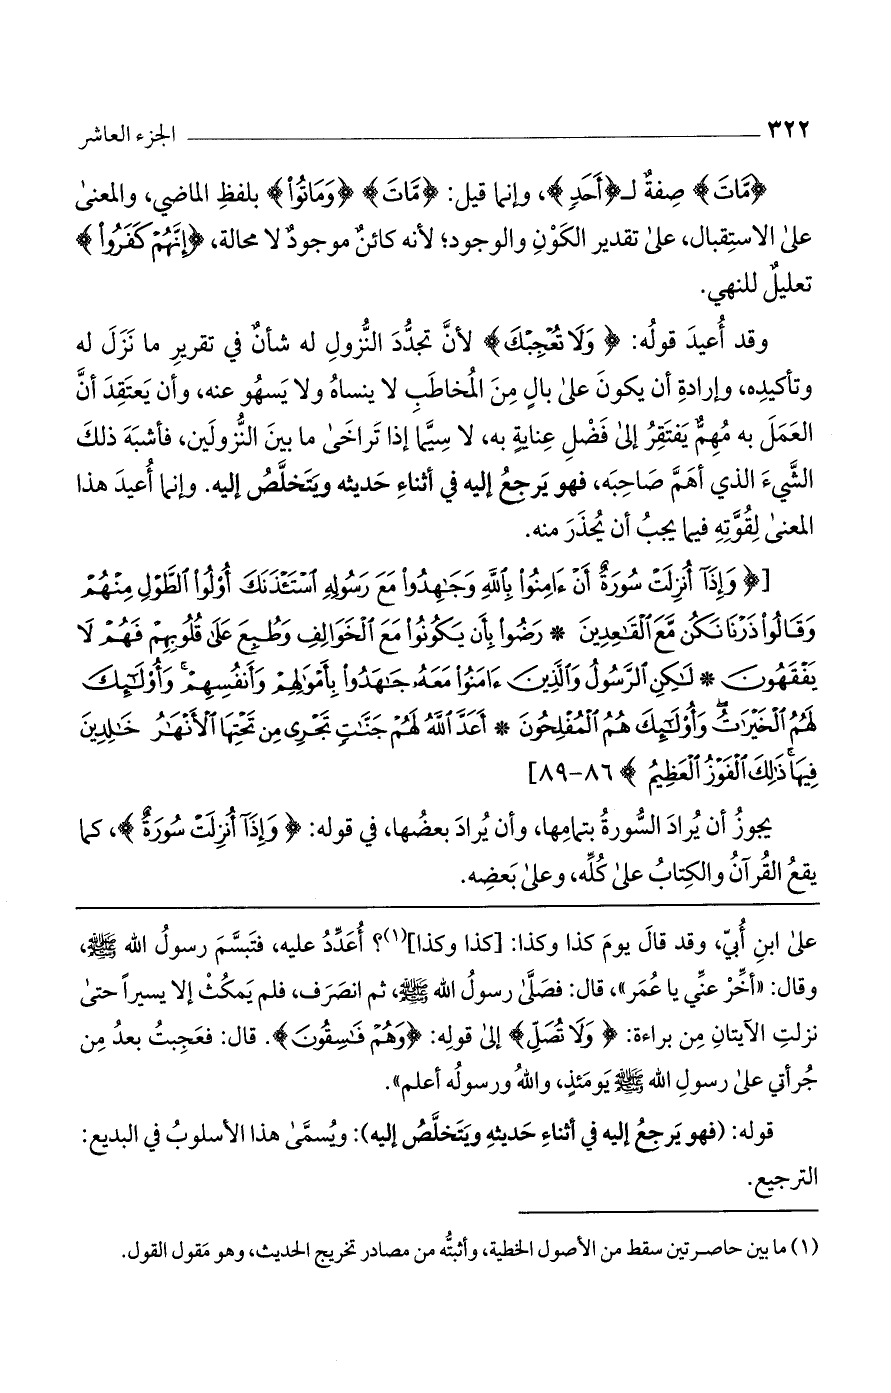 ٣٢٢ الجزء العاشر
﴿مَّاتَ﴾ صِفةٌ لـ﴿أَحَدٍ﴾، وإنما قيل: ﴿مَّاتَ﴾ ﴿وَمَاتُواْ﴾ بلفظِ الماضي، والمعنىٰ
علىٰ الاستِقبال، علىٰ تقدير الكَوْنِ والوجود؛ لأنه كائنٌ موجودٌ لا محالة، ﴿إِنَّهُمْ كَفَرُواْ﴾
تعليلٌ للنهي.
وقد أُعيدَ قولُه: ﴿وَلَا تُعْجِبْكَ﴾ لأنَّ تجدُّدَ النُّزولِ له شأنٌ في تقريرِ ما نَزَلَ له
وتأكيدِه، وإرادةِ أن يكونَ علىٰ بالٍ مِنَ المُخاطَبِ لا ينساهُ ولا يَسهُو عنه، وأن يَعتَقِدَ أنَّ
العَمَلَ به مُهِمٌّ يَفتَقِرُ إلىٰ فَضْلِ عِنايةٍ به، لا سِيَّما إذا تَراخَىٰ ما بينَ النُّزولَين، فأشبَهَ ذلكَ
الشَّيءَ الذي أهَمَّ صَاحِبَه، فهو يَرجِعُ إليه في أثناءِ حَديثه ويَتَخلَّصُ إليه. وإنما أُعيدَ هذا
المعنىٰ لِقُوَّتِهِ فيما يجبُ أن يُحذَرَ منه.
[﴿وَإِذَآ أُنزِلَتْ سُورَةٌ أَنْ ءَامِنُواْ بِٱللَّهِ وَجَٰهِدُواْ مَعَ رَسُولِهِ ٱسْتَـْٔذَنَكَ أُوْلُواْ ٱلطَّوْلِ مِنْهُمْ
وَقَالُواْ ذَرْنَا نَكُن مَّعَ ٱلْقَٰعِدِينَ * رَضُواْ بِأَن يَكُونُواْ مَعَ ٱلْخَوَالِفِ وَطُبِعَ عَلَىٰ قُلُوبِهِمْ فَهُمْ لَا
يَفْقَهُونَ * لَٰكِنِ ٱلرَّسُولُ وَٱلَّذِينَ ءَامَنُواْ مَعَهُۥ جَٰهَدُواْ بِأَمْوَٰلِهِمْ وَأَنفُسِهِمْ ۚ وَأُوْلَٰٓئِكَ
لَهُمُ ٱلْخَيْرَٰتُ ۖ وَأُوْلَٰٓئِكَ هُمُ ٱلْمُفْلِحُونَ * أَعَدَّ ٱللَّهُ لَهُمْ جَنَّٰتٍ تَجْرِى مِن تَحْتِهَا ٱلْأَنْهَٰرُ خَٰلِدِينَ
فِيهَا ۚ ذَٰلِكَ ٱلْفَوْزُ ٱلْعَظِيمُ﴾ ٨٦-٨٩]
يجوزُ أن يُرادَ السُّورةُ بتمامِها، وأن يُرادَ بعضُها، في قوله: ﴿وَإِذَآ أُنزِلَتْ سُورَةٌ﴾، كما
يقعُ القُرآنُ والكِتابُ علىٰ كُلِّه، وعلىٰ بَعضِه.
علىٰ ابنِ أُبيّ، وقد قالَ يومَ كذا وكذا: [كذا وكذا](١)؟ أُعَدِّدُ عليه، فتَبسَّمَ رسولُ الله ﷺ،
وقال: «أخِّرْ عنِّي يا عُمَر»، قال: فصَلَّىٰ رسولُ الله ﷺ، ثم انصَرَف، فلم يَمكُثْ إلا يسيراً حتىٰ
نزلتِ الآيتانِ مِن براءة: ﴿وَلَا تُصَلِّ﴾ إلىٰ قولِه: ﴿وَهُمْ فَٰسِقُونَ﴾. قال: فعَجِبتُ بعدُ مِن
جُرأتي علىٰ رسولِ الله ﷺ يَومَئذٍ، واللهُ ورسولُه أعلم».
قوله: (فهو يَرجِعُ إليه في أثناءِ حَديثهِ ويَتَخلَّصُ إليه): ويُسمَّىٰ هذا الأسلوبُ في البديع:
الترجيع.
(١) ما بين حاصرتين سقط من الأصول الخطية، وأثبتُّه من مصادر تخريج الحديث، وهو مَقول القول.